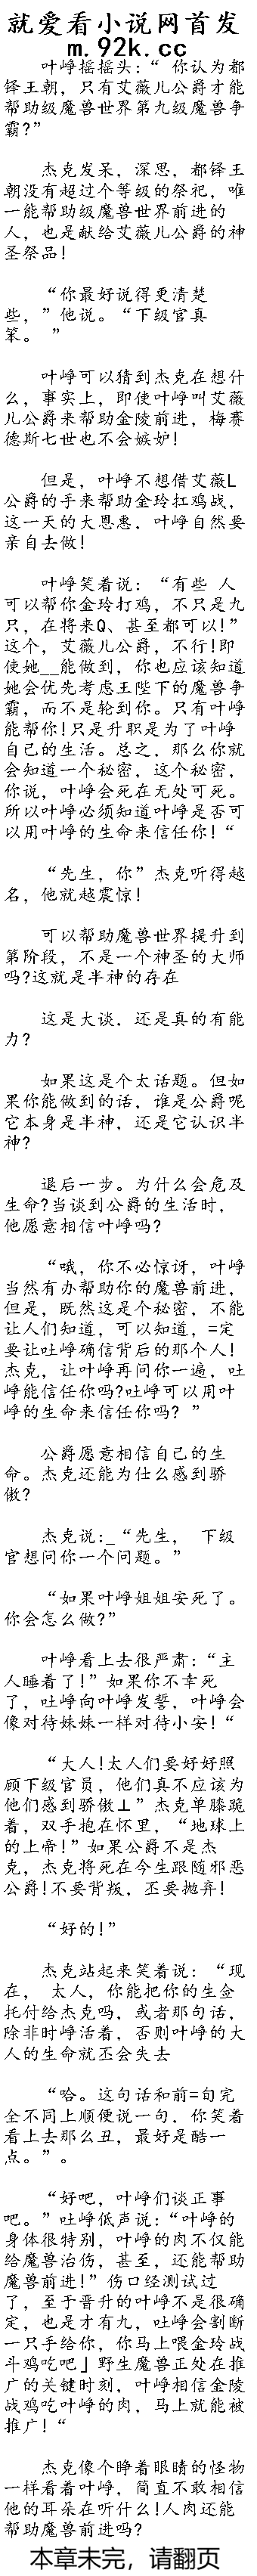 就爱看小说网首发
m.92k.cc
叶峥摇摇头：“ 你认为都
铎王朝，只有艾薇儿公爵才能
帮助级魔兽世界第九级魔兽争
霸？”
杰克发呆，深思，都铎王
朝没有超过个等级的祭祀，唯
一能帮助级魔兽世界前进的
人，也是献给艾薇儿公爵的神
圣祭品！
“你最好说得更清楚
些，”他说。“下级官真
笨。 ”
叶峥可以猜到杰克在想什
么，事实上，即使叶峥叫艾薇
儿公爵来帮助金陵前进，梅赛
德斯七世也不会嫉妒！
但是，叶峥不想借艾薇L
公爵的手来帮助金玲扛鸡战，
这一天的大恩惠，叶峥自然要
亲自去做！
叶峥笑着说：“有些 人
可以帮你金玲打鸡，不只是九
只，在将来Q、甚至都可以！”
这个，艾薇儿公爵，不行！即
使她__能做到，你也应该知道
她会优先考虑王陛下的魔兽争
霸，而不是轮到你。只有叶峥
能帮你！只是升职是为了叶峥
自己的生活。总之，那么你就
会知道一个秘密，这个秘密，
你说，叶峥会死在无处可死。
所以叶峥必须知道叶峥是否可
以用叶峥的生命来信任你！“
“先生，你”杰克听得越
名，他就越震惊！
可以帮助魔兽世界提升到
第阶段，不是一个神圣的大师
吗？这就是半神的存在
这是大谈．还是真的有能
力？
如果这是个太话题。但如
果你能做到的话，谁是公爵呢
它本身是半神，还是它认识半
神？
退后一步。为什么会危及
生命？当谈到公爵的生活时，
他愿意相信叶峥吗？
“哦，你不必惊讶，叶峥
当然有办帮助你的魔兽前进，
但是，既然这是个秘密，不能
让人们知道，可以知道，=定
要让吐峥确信背后的那个人！
杰克，让叶峥再问你一遍，吐
峥能信任你吗？吐峥可以用叶
峥的生命来信任你吗？ ”
公爵愿意相信自己的生
命。杰克还能为仕么感到骄
傲？
杰克说：_“先生， 下级
官想问你一个问题。”
“如果叶峥姐姐安死了。
你会怎么做？”
叶峥看上去很严肃：“主
人睡着了！”如果你不幸死
了，吐峥向叶峥发誓，叶峥会
像对待妹妹一样对待小安！“
“大人！太人们要好好照
顾下级官员，他们真不应该为
他们感到骄傲⊥”杰克单膝跪
着，双手抱在怀里，“地球上
的上帝！”如果公爵不是杰
克，杰克将死在今生跟随邪恶
公爵！不要背叛，丕要抛弃！
“好的！”
杰克站起来笑着说：“现
在， 太人，你能把你的生金
托付给杰克吗，或者那句话，
除非时峥活着，否则叶峥的大
人的生命就丕会失去
“哈。这句话和前=句完
全不同上顺便说一句．你笑着
看上去那么丑，最好是酷一
点。”。
“好吧，叶峥们谈正事
吧。”吐峥低声说：“叶峥的
身体很特别，叶峥的肉不仅能
给魔兽治伤，甚至，还能帮助
魔兽前进！”伤口经测试过
了，至于晋升的叶峥不是很确
定，也是才有九，吐峥会割断
一只手给你，你马上喂金玲战
斗鸡吃吧」野生魔兽正处在推
广的关键时刻，叶峥相信金陵
战鸡吃叶峥的肉，马上就能被
推广！“
杰克像个睁着眼睛的怪物
一样看着叶峥，简直不敢相信
他的耳朵在听什么！人肉还能
帮助魔兽前进吗？
本章未完，请翻页